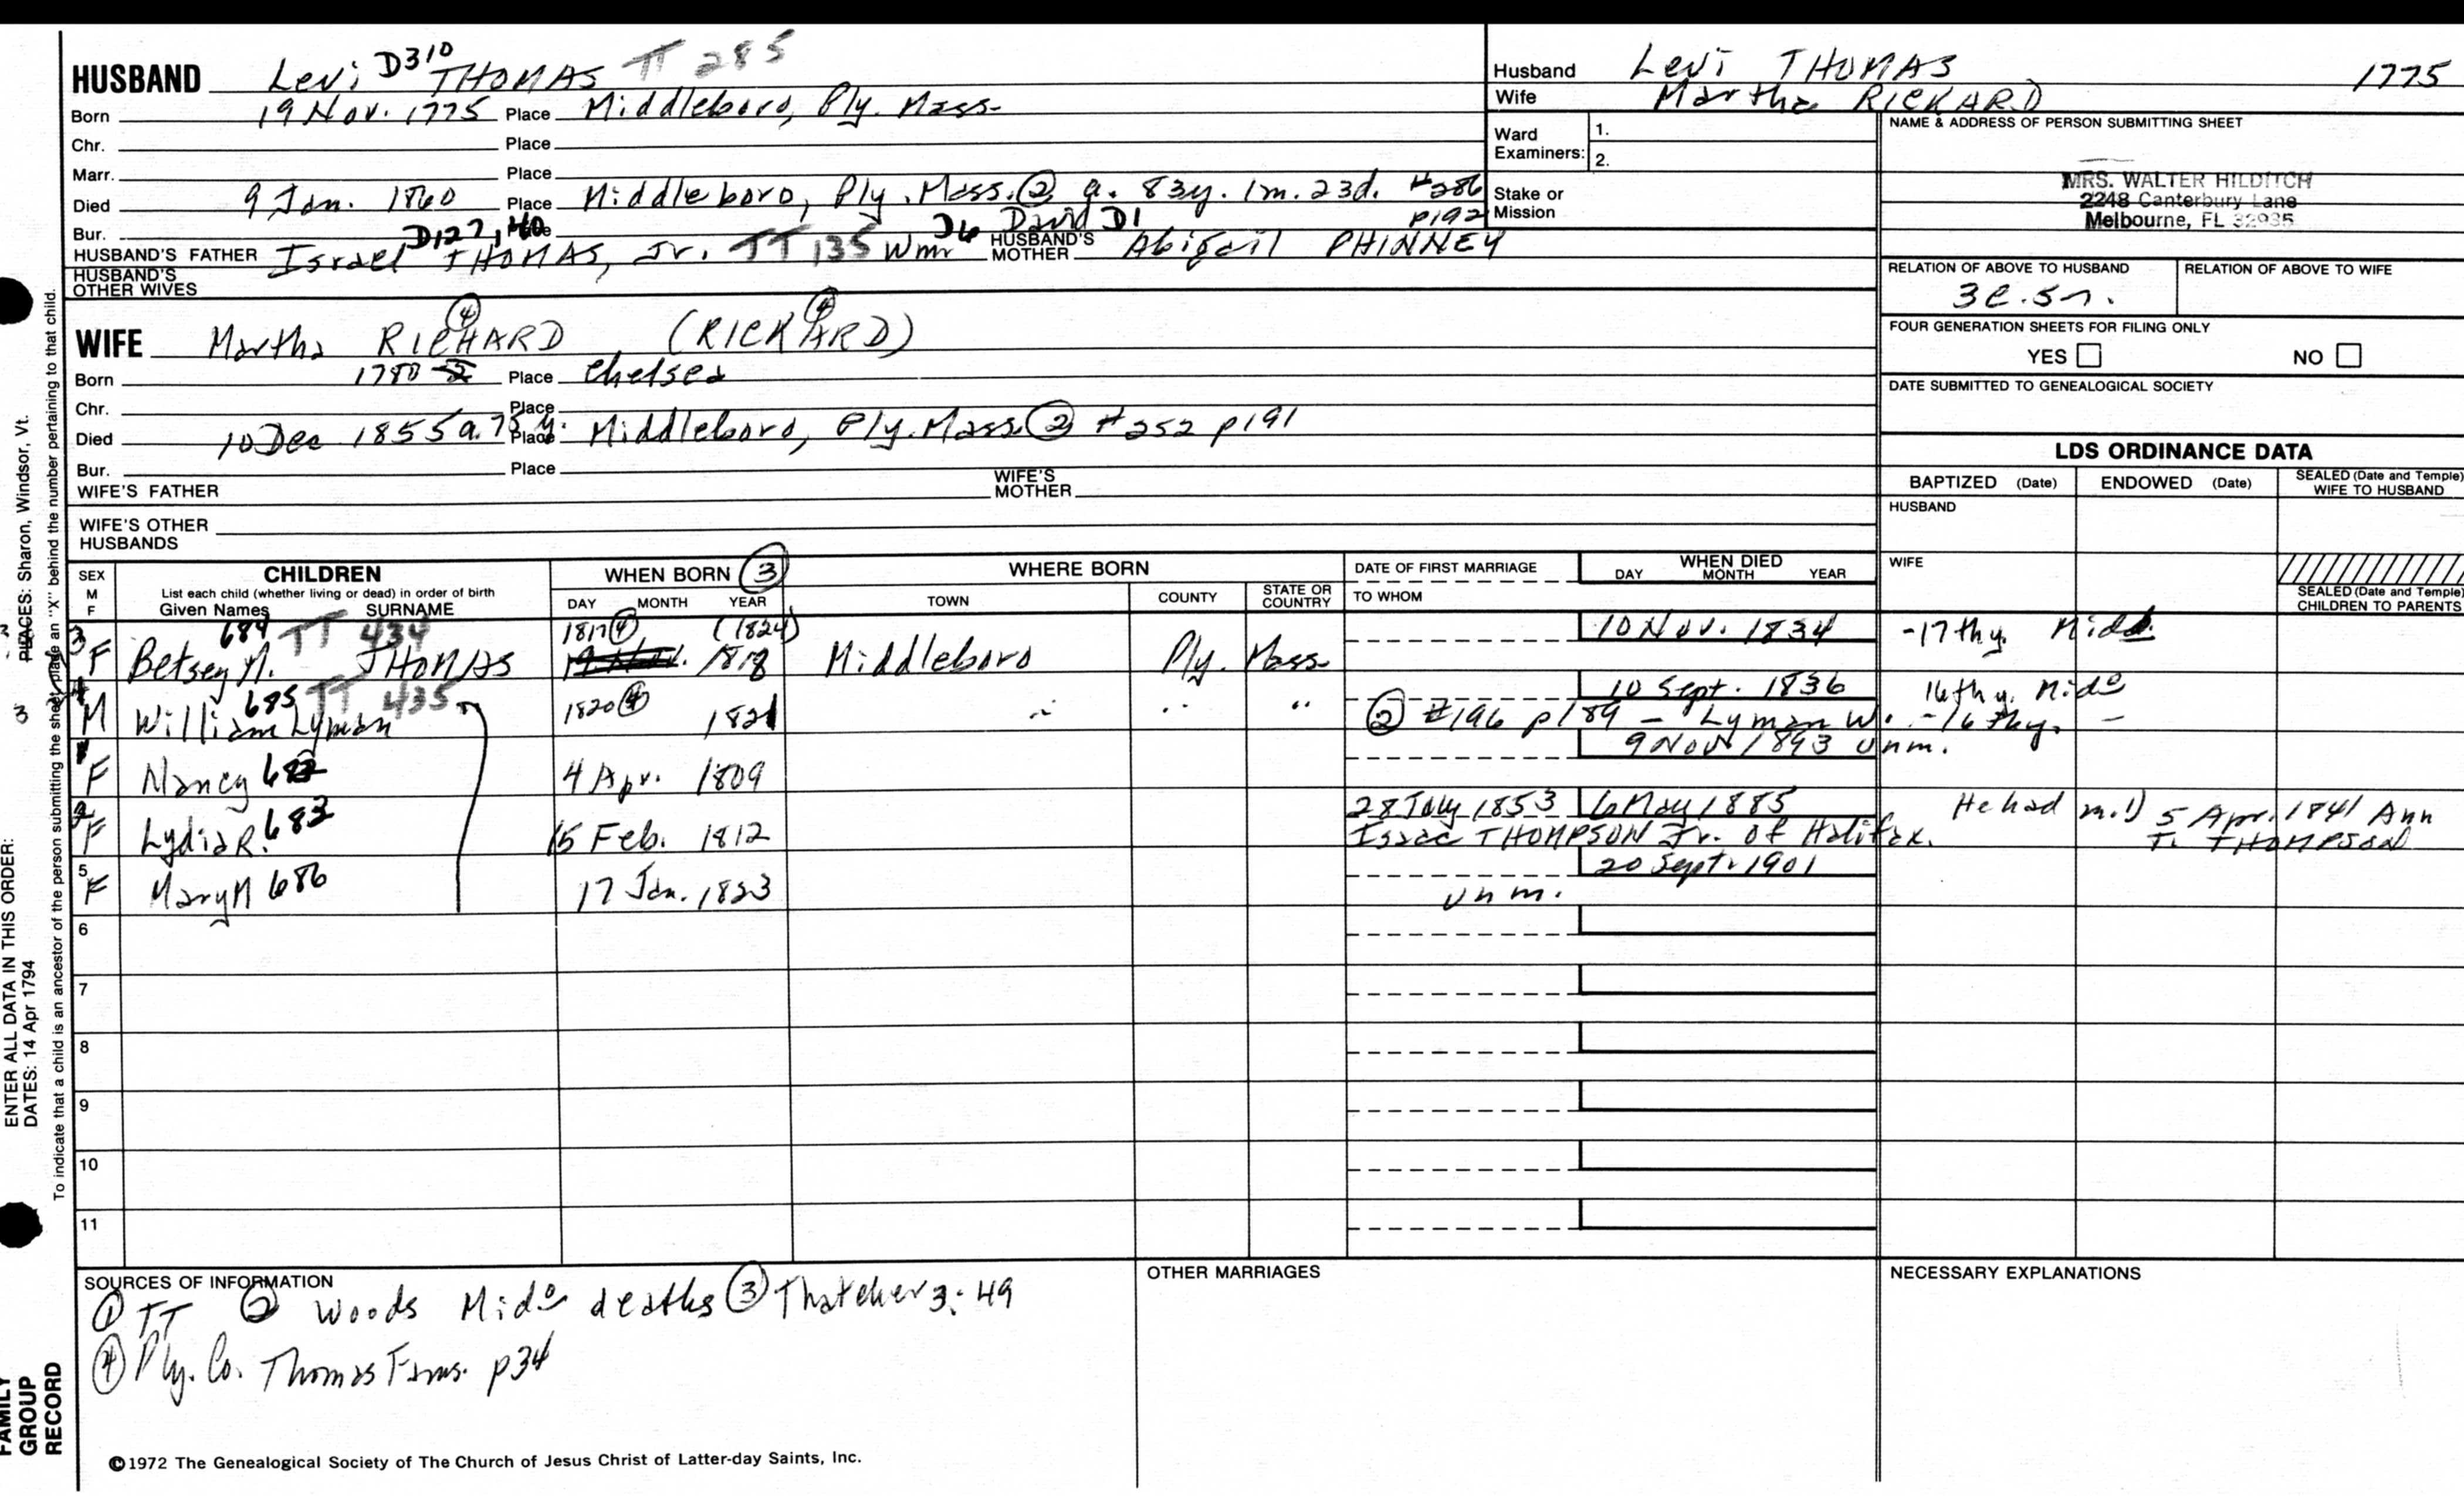 HUSBAND Levi D310 THOMAS TT 285
Born 19 Nov. 1775 Place Middleboro, Ply. Mass.
Chr. Place
Marr. Place
Died 9 Jan. 1860 Place Middleboro, Ply. Mass. ② a. 83y. 1m. 23d. #286 p192
Bur. D127,40 Place D6 David D1
HUSBAND'S FATHER Israel THOMAS, Jr. TT 135 Wmr HUSBAND'S MOTHER Abigail PHINNEY
HUSBAND'S OTHER WIVES
WIFE Martha RICHARD ④ (RICKARD) ④
Born 1780 Place Chelsea
Chr. Place
Died 10 Dec 1855 a. 75 y. Place Middleboro, Ply. Mass ② #252 p191
Bur. Place
WIFE'S FATHER WIFE'S MOTHER
WIFE'S OTHER HUSBANDS
Husband Levi THOMAS 1775
Wife Martha RICKARD
Ward Examiners: 1.
2.
Stake or Mission
NAME & ADDRESS OF PERSON SUBMITTING SHEET
MRS. WALTER HILDITCH
2248 Canterbury Lane
Melbourne, FL 32935
RELATION OF ABOVE TO HUSBAND RELATION OF ABOVE TO WIFE
3c.5r.
FOUR GENERATION SHEETS FOR FILING ONLY
YES NO
DATE SUBMITTED TO GENEALOGICAL SOCIETY
LDS ORDINANCE DATA
BAPTIZED (Date) ENDOWED (Date) SEALED (Date and Temple) WIFE TO HUSBAND
HUSBAND
WIFE
SEALED (Date and Temple) CHILDREN TO PARENTS
SEX M F CHILDREN List each child (whether living or dead) in order of birth Given Names SURNAME WHEN BORN ③ DAY MONTH YEAR WHERE BORN TOWN COUNTY STATE OR COUNTRY DATE OF FIRST MARRIAGE TO WHOM WHEN DIED DAY MONTH YEAR
684 TT 434 1817④ (1824) 10 Nov. 1834 -17th y. Mido.
3 F Betsey M. THOMAS 1818 Middleboro Ply. Mass.
685 TT 435 1820④ 10 Sept. 1836 16th y. Mido
4 M William Lyman 1821 " " " ② #196 p189 - Lyman W. -16thy. -
9 Nov 1893 unm.
1 F Nancy 682 4 Apr. 1809
28 July 1853 6 May 1885 He had m.1) 5 Apr. 1841 Ann T. THOMPSON
2 F Lydia R. 683 15 Feb. 1812 Isaac THOMPSON Jr. of Halifax.
20 Sept. 1901
5 F Mary M 686 17 Jan. 1823 unm.
6
7
8
9
10
11
SOURCES OF INFORMATION
① TT ② Woods Mido deaths ③ Thatcher 3: 49
④ Ply. Co. Thomas Fams. p34
OTHER MARRIAGES
NECESSARY EXPLANATIONS
©1972 The Genealogical Society of The Church of Jesus Christ of Latter-day Saints, Inc.
FAMILY GROUP RECORD
ENTER ALL DATA IN THIS ORDER:
DATES: 14 Apr 1794
PLACES: Sharon, Windsor, Vt.
To indicate that a child is an ancestor of the person submitting the sheet, place an "X" behind the number pertaining to that child.